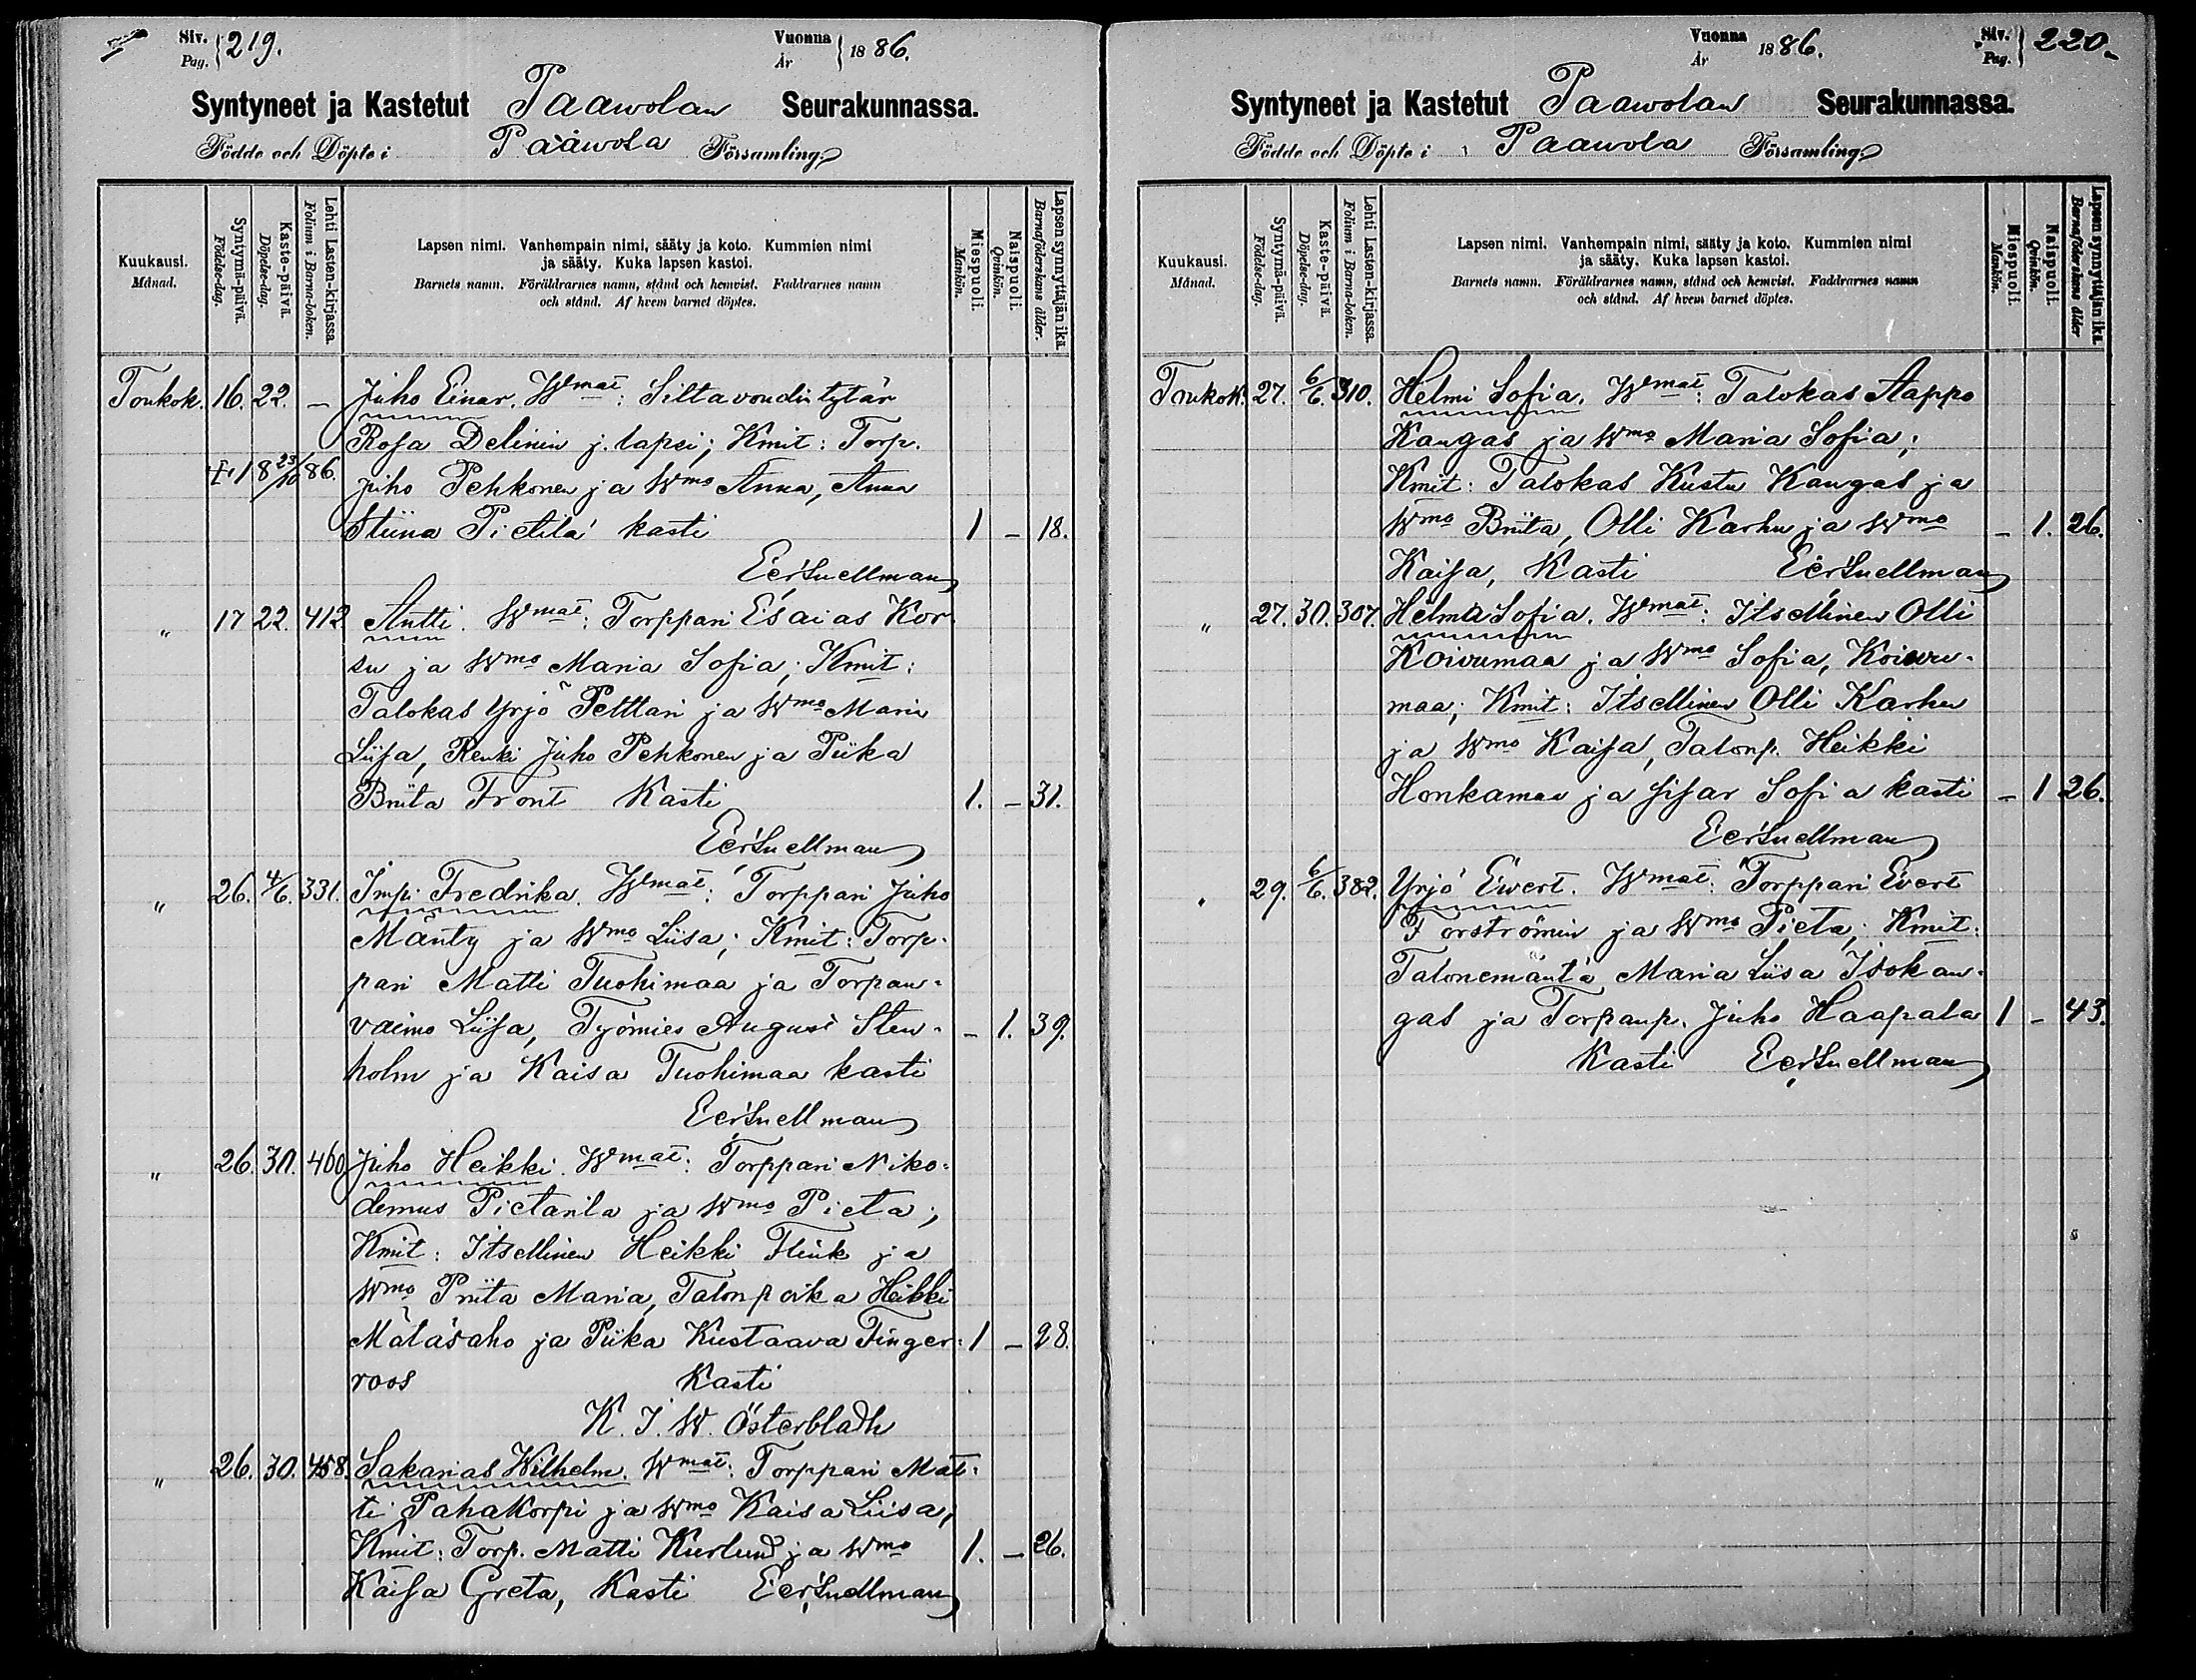 Siv. Pag. 219.
Vuonna År 1886.
Syntyneet ja Kastetut Paawolan Seurakunnassa.
Födde och Döpte i Paawola Församling
Kuukausi. Månad.
Syntymä-päivä. Födelse-dag.
Kaste-päivä. Döpelse-dag.
Lehti Lasten-kirjassa. Folium i Barna-boken.
Lapsen nimi. Vanhempain nimi, sääty ja koto. Kummien nimi
ja sääty. Kuka lapsen kastoi.
Barnets namn. Föräldrarnes namn, stånd och hemvist. Faddrarnes namn
och stånd. Af hvem barnet döptes.
Miespuoli. Mankön.
Naispuoli. Qvinkön.
Lapsen synnyttäjän ikä. Barnaföderskans ålder.
Toukok. 16. 22. — Juho Einar. Wmat: Siltavoudin tytär
Rosa Delinin j. lapsi; Kmit: Torp.
† 18 23/10 86. Juho Pehkonen ja Wmo Anna, Anna
Stiina Pietilä kasti 1 — 18.
Eer. Snellman
" 17 22. 412 Antti. Wmat: Torppari Esaias Kor-
su ja Wmo Maria Sofia; Kmit:
Talokas Yrjö Pelttari ja Wmo Maria
Liisa, Renki Juho Pehkonen ja Piika
Briita Front Kasti 1. — 31.
Eer. Snellman
" 26. 4/6. 331. Impi Fredrika. Wmat: Torppari Juho
Mänty ja Wmo Liisa; Kmit: Torp-
pari Matti Tuohimaa ja Torpan-
vaimo Liisa, Työmies August Sten-
— 1. 39.
holm ja Kaisa Tuohimaa kasti
Eer. Snellman
" 26. 30. 460 Juho Heikki. Wmat: Torppari Niko-
demus Pietarila ja Wmo Pieta;
Kmit: Itsellinen Heikki Flink ja
Wmo Priita Maria, Talonpoika Heikki
Mätäsaho ja Piika Kustaava Finger- 1 — 28.
roos Kasti
K. J. W. Österbladh
" 26. 30. 458. Sakarias Wilhelm. Wmat: Torppari Mat-
ti Pahakorpi ja Wmo Kaisa Liisa,
Kmit: Torp. Matti Kurlund ja Wmo 1. — 26.
Kaisa Greta, Kasti Eer. Snellman
Vuonna År 1886.
Siv. Pag. 220.
Syntyneet ja Kastetut Paawolan Seurakunnassa.
Födde och Döpte i Paawola Församling
Kuukausi. Månad.
Syntymä-päivä. Födelse-dag.
Kaste-päivä. Döpelse-dag.
Lehti Lasten-kirjassa. Folium i Barna-boken.
Lapsen nimi. Vanhempain nimi, sääty ja koto. Kummien nimi
ja sääty. Kuka lapsen kastoi.
Barnets namn. Föräldrarnes namn, stånd och hemvist. Faddrarnes namn
och stånd. Af hvem barnet döptes.
Miespuoli. Mankön.
Naispuoli. Qvinkön.
Lapsen synnyttäjän ikä. Barnaföderskans ålder
Toukok. 27. 6/6. 310. Helmi Sofia. Wmat: Talokas Aappo
Kangas ja Wmo Maria Sofia;
Kmit: Talokas Kustu Kangas ja
Wmo Briita, Olli Karhu ja Wmo — 1. 26.
Kaisa, Kasti Eer. Snellman
" 27. 30. 307. Helma Sofia. Wmat: Itsellinen Olli
Koivumaa ja Wmo Sofia, Koivu-
maa; Kmit: Itsellinen Olli Karhu
ja Wmo Kaisa, Talonp. Heikki
Honkamaa ja sisar Sofia kasti — 1 26.
Eer. Snellman
" 29. 6/6. 382. Yrjö Ewert. Wmat: Torppari Evert
Forströmin ja Wmo Pieta; Kmit:
Talonemäntä Maria Liisa Isokan-
gas ja Torpanp. Juho Haapala 1 — 43.
Kasti Eer. Snellman